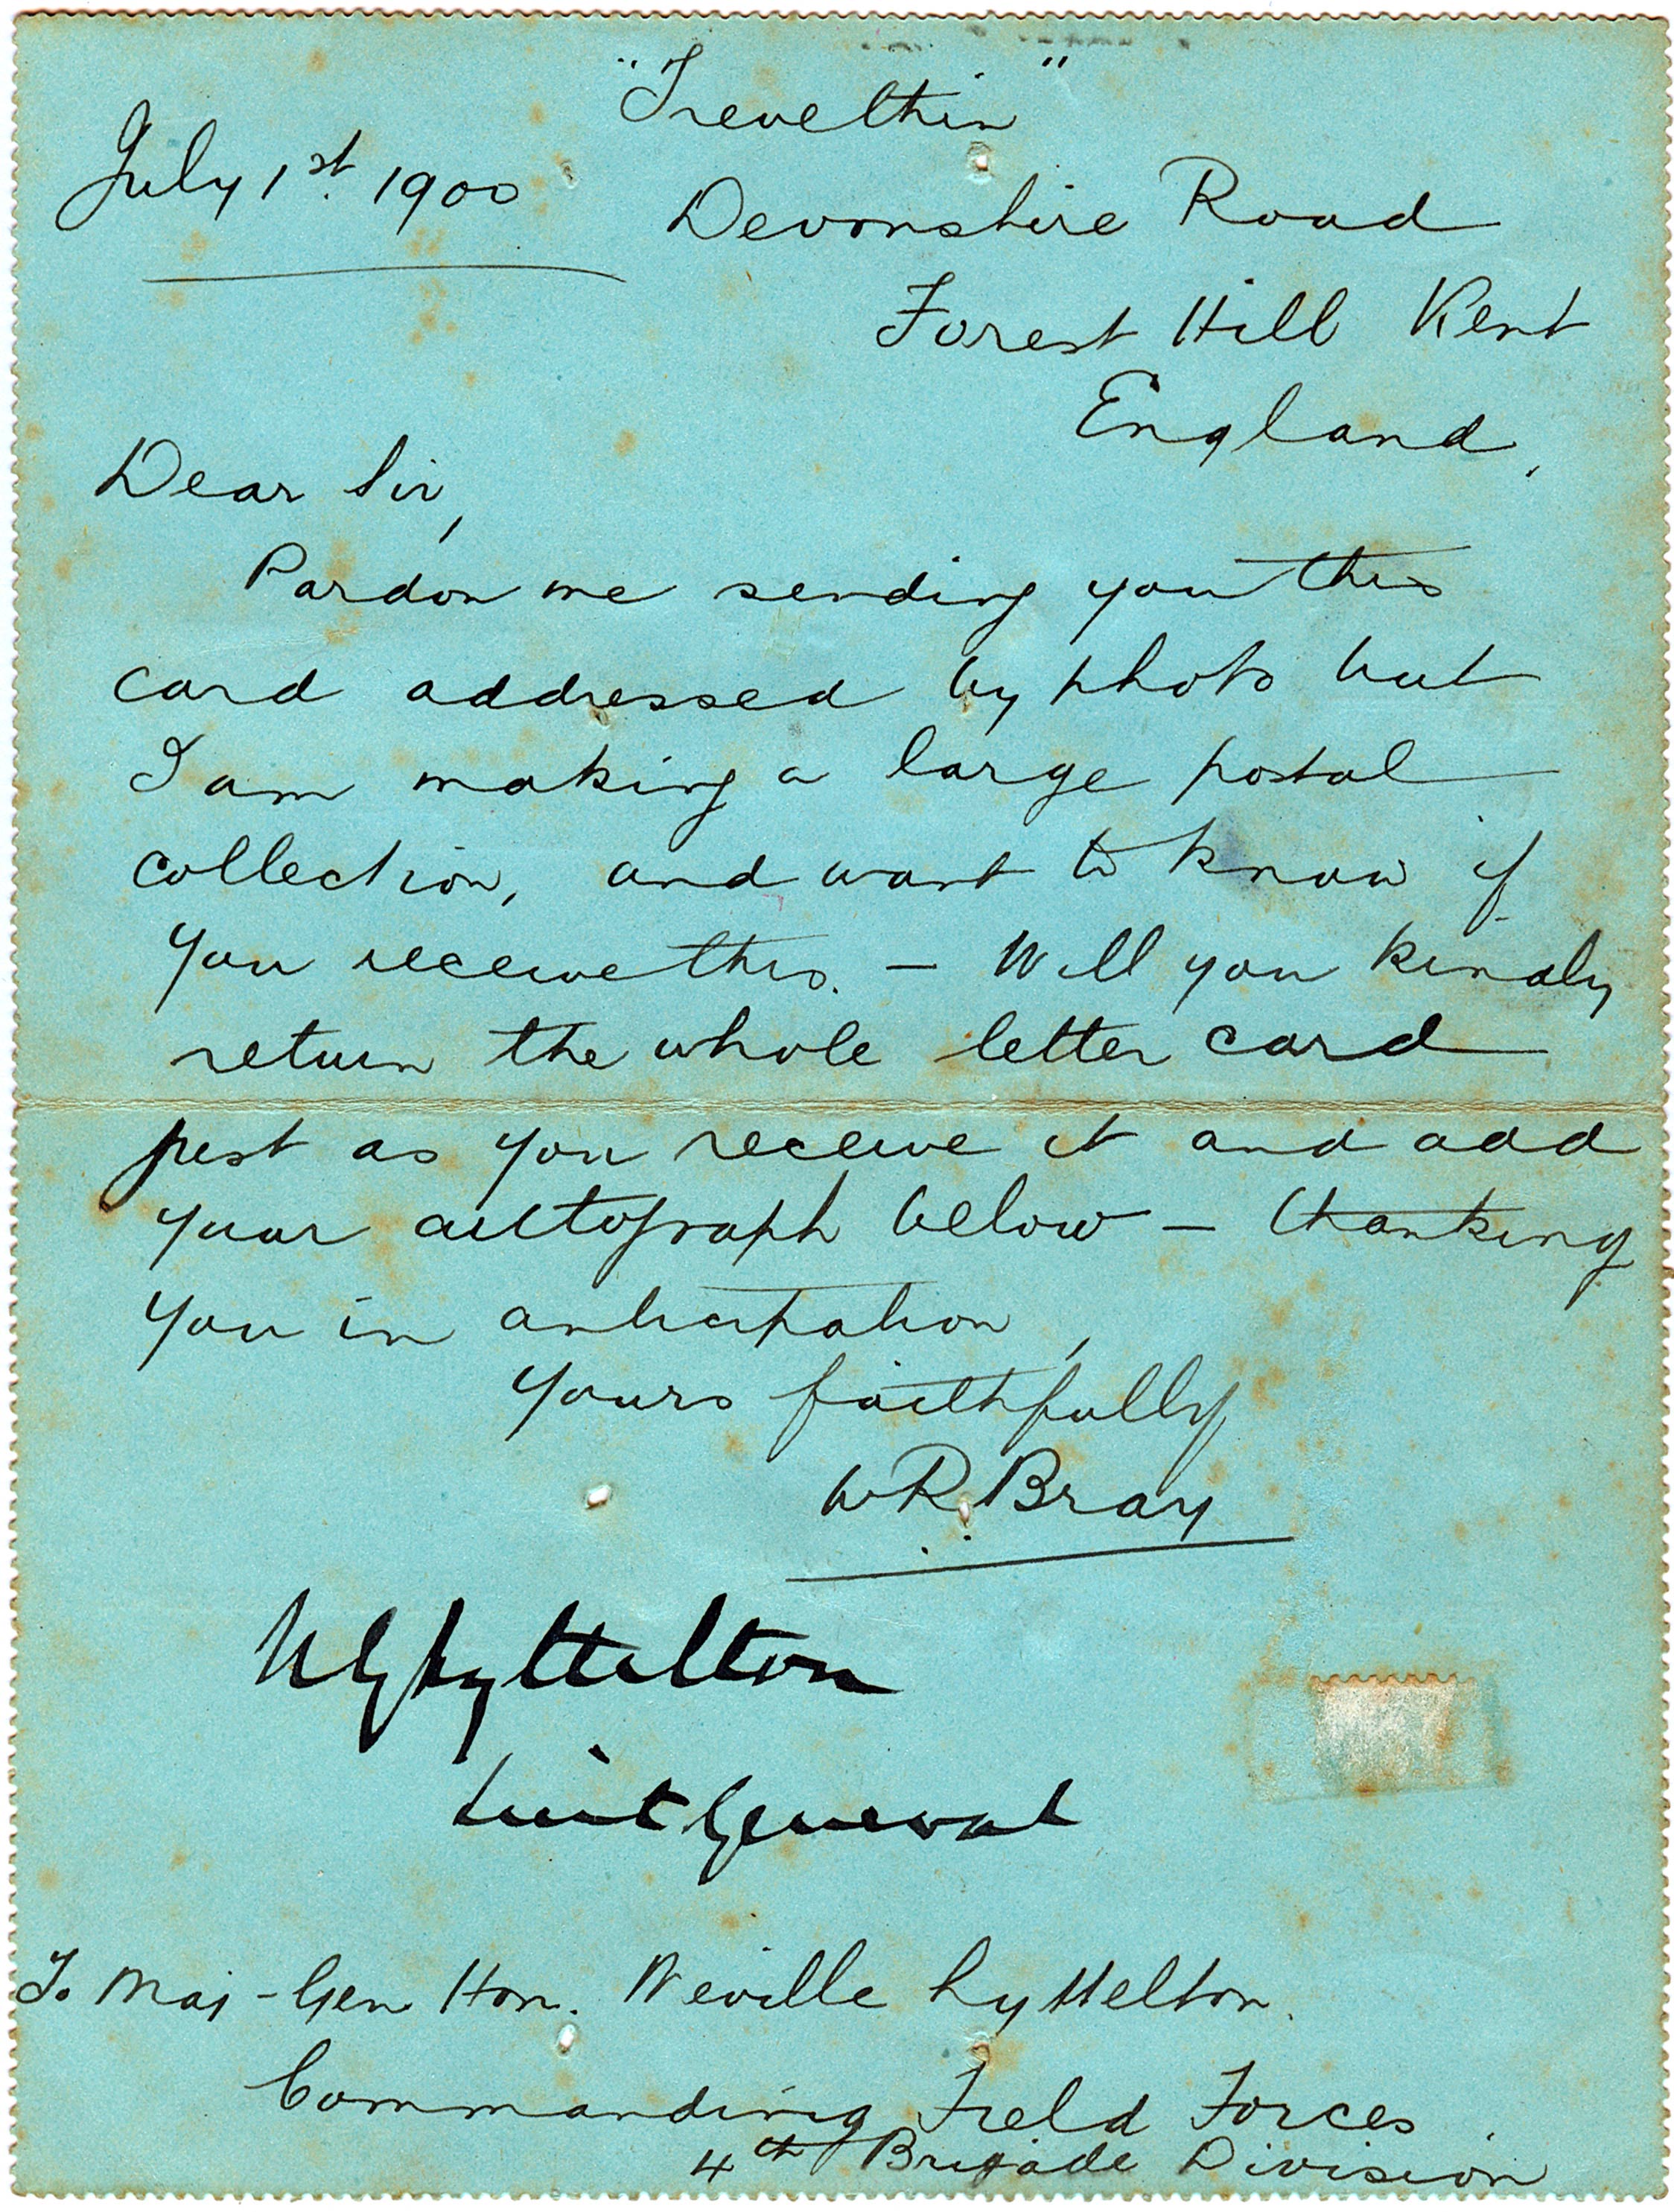 "Trevethin"
July 1st. 1900
Devonshire Road
Forest Hill Kent
England,
Dear Sir,
Pardon me sending you this
card addressed by photo but
I am making a large postal
collection, and want to know if
you receive this. — Will you kindly
return the whole letter card
just as you receive it and add
your autograph below — thanking
you in anticipation,
Yours faithfully
W.R. Bray
N G Lyttelton
Lieut General
To Maj-Gen Hon. Neville Lyttelton.
Commanding Field Forces.
4th Brigade Division